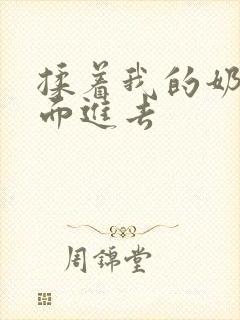 揉着我的奶
而進去
周錦堂